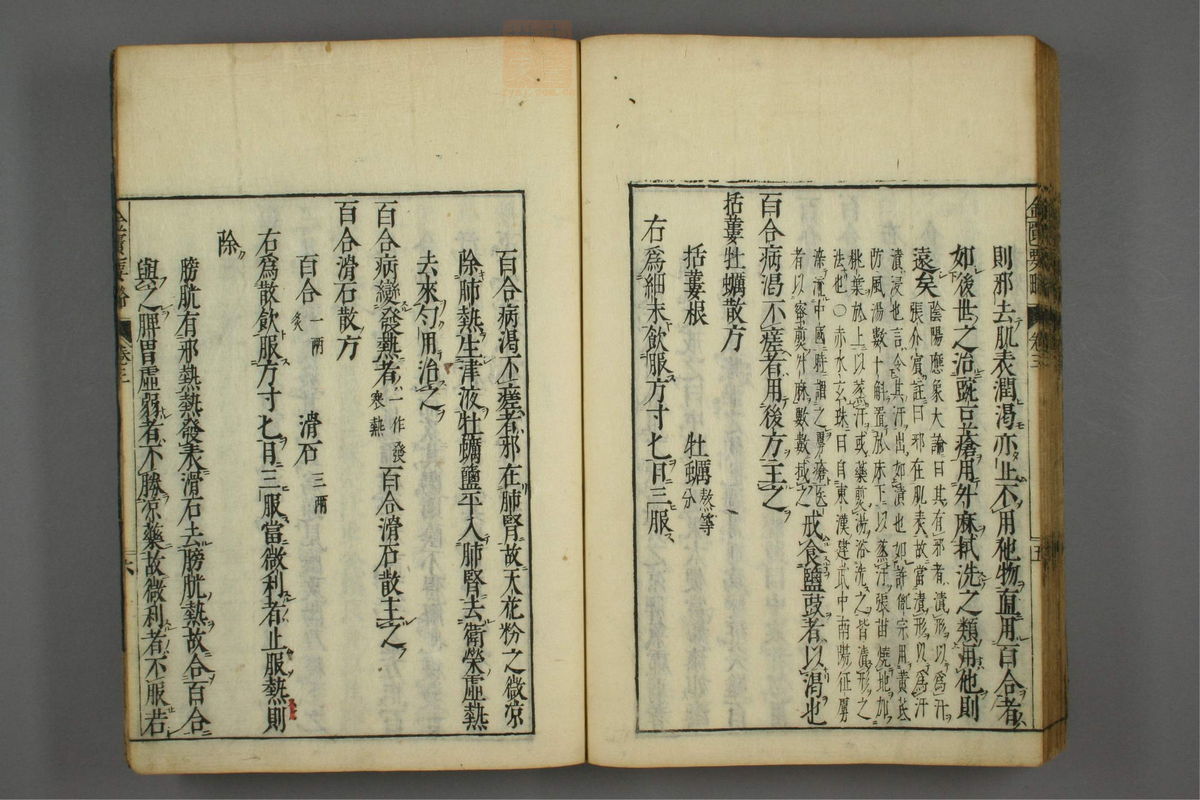 則邪去肌表潤渴亦止不用他物直用百合者
如後世之治豌豆瘡用升麻拭洗之類用他則
遠矣陰陽應象大論曰其有邪者漬形以爲汗
張介賓註曰邪在肌表故當漬形以爲汗
漬浸也言令其汗出如漬也如許胤宗用黃茋
防風湯數十斛置於床下以蒸汗張苗燒地加
桃葉於上以蒸汗或藥煎湯浴洗之皆漬形之
法也〇赤水玄珠曰自東漢建武中南陽征虜
流中國時謂之虜瘡医
者以蜜煎升麻數數拭之戒食鹽豉者以渴也
百合病渴不瘥者用後方主之
括蔞牡蠣散方
括蔞根 牡蠣熬等分
右爲細末飲服方寸匕日三服
百合病渴不瘥者邪在肺腎故天花粉之微凉
除肺熱生津液牡蠣鹽平入肺腎去衛榮虛熱
去來勺用治之
百合病變發熱者一作發寒熱百合滑石散主之
百合滑石散方
百合一兩炙 滑石三兩
右爲散飲服方寸匕日三服當微利者止服熱則
除
膀胱有邪熱熱發表滑石去膀胱熱故合百合
與之脾胃虛弱者不勝凉藥故微利者不服若
金匱要略 卷三 五
金匱要略 卷三 六